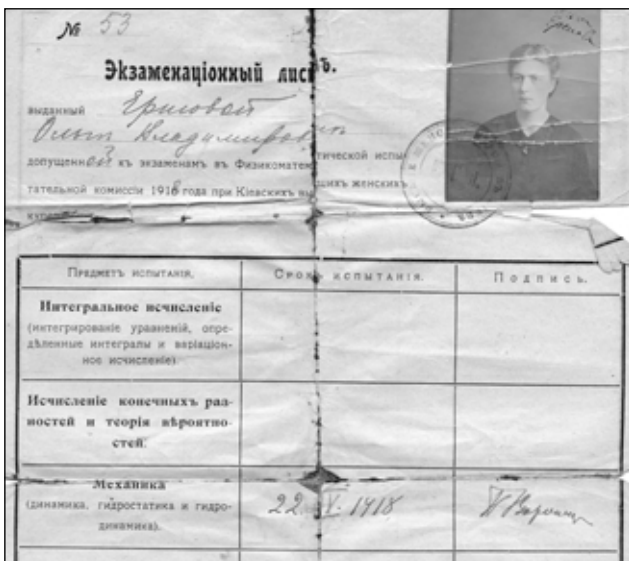 № 53
Экзаменаціонный листъ.
выданный Ершовой
Ольгѣ Владимировнѣ
допущенной къ экзаменамъ въ Физикоматематической испы-
тательной комиссіи 1918 года при Кіевскихъ высшихъ женскихъ
Предметъ испытанія. Срокъ испытанія. Подпись.
Интегральное исчисленіе
(интегрированіе уравненій, опре-
дѣленные интегралы и варіацiон-
ное исчисленіе).
Исчисленіе конечныхъ раз-
ностей и теорія вѣроятно-
стей.
Механика
(динамика, гидростатика и гидро-
динамика).
22 V. 1918